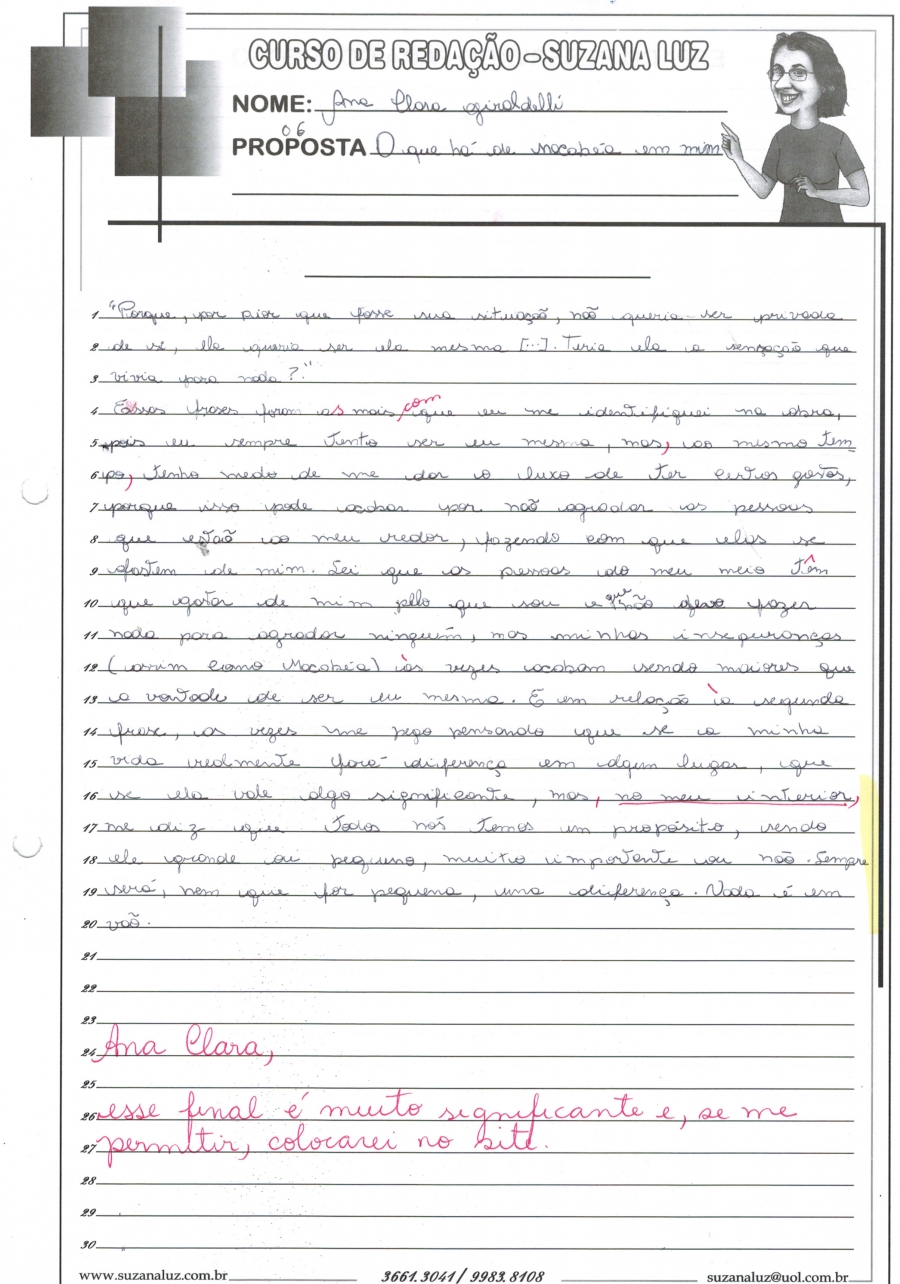 CURSO DE REDAÇÃO - SUZANA LUZ
NOME: Ana Clara Giroldelli
06
PROPOSTA O que há de Macabéa em mim
1 "Porque, por pior que fosse sua situação, não queria ser privada
2 de si, ela queria ser ela mesma [...]. Teria ela a sensação que
3 vivia para nada?"
4 Essas frases foram as mais com que eu me identifiquei na obra,
5 pois eu sempre tento ser eu mesma, mas, ao mesmo tem-
6 po, tenho medo de me dar o luxo de ter certos gostos,
7 porque isso pode acabar por não agradar as pessoas
8 que estão ao meu redor, fazendo com que elas se
9 afastem de mim. Sei que as pessoas do meu meio têm
10 que gostar de mim pelo que sou e que não devo fazer
11 nada para agradar ninguém, mas minhas inseguranças
12 (assim como Macabéa) às vezes acabam sendo maiores que
13 a vontade de ser eu mesma. E em relação à segunda
14 frase, as vezes me pego pensando que se a minha
15 vida realmente fará diferença em algum lugar, que
16 se ela vale algo significante, mas, no meu interior,
17 me diz que todos nós temos um propósito, sendo
18 ele grande ou pequeno, muito importante ou não. Sempre
19 será, nem que for pequena, uma diferença. Nada é em
20 vão.
21
22
23
24 Ana Clara,
25
26 esse final é muito significante e, se me
27 permitir, colocarei no site.
28
29
30
www.suzanaluz.com.br 3661.3041 / 9983.8108 suzanaluz@uol.com.br